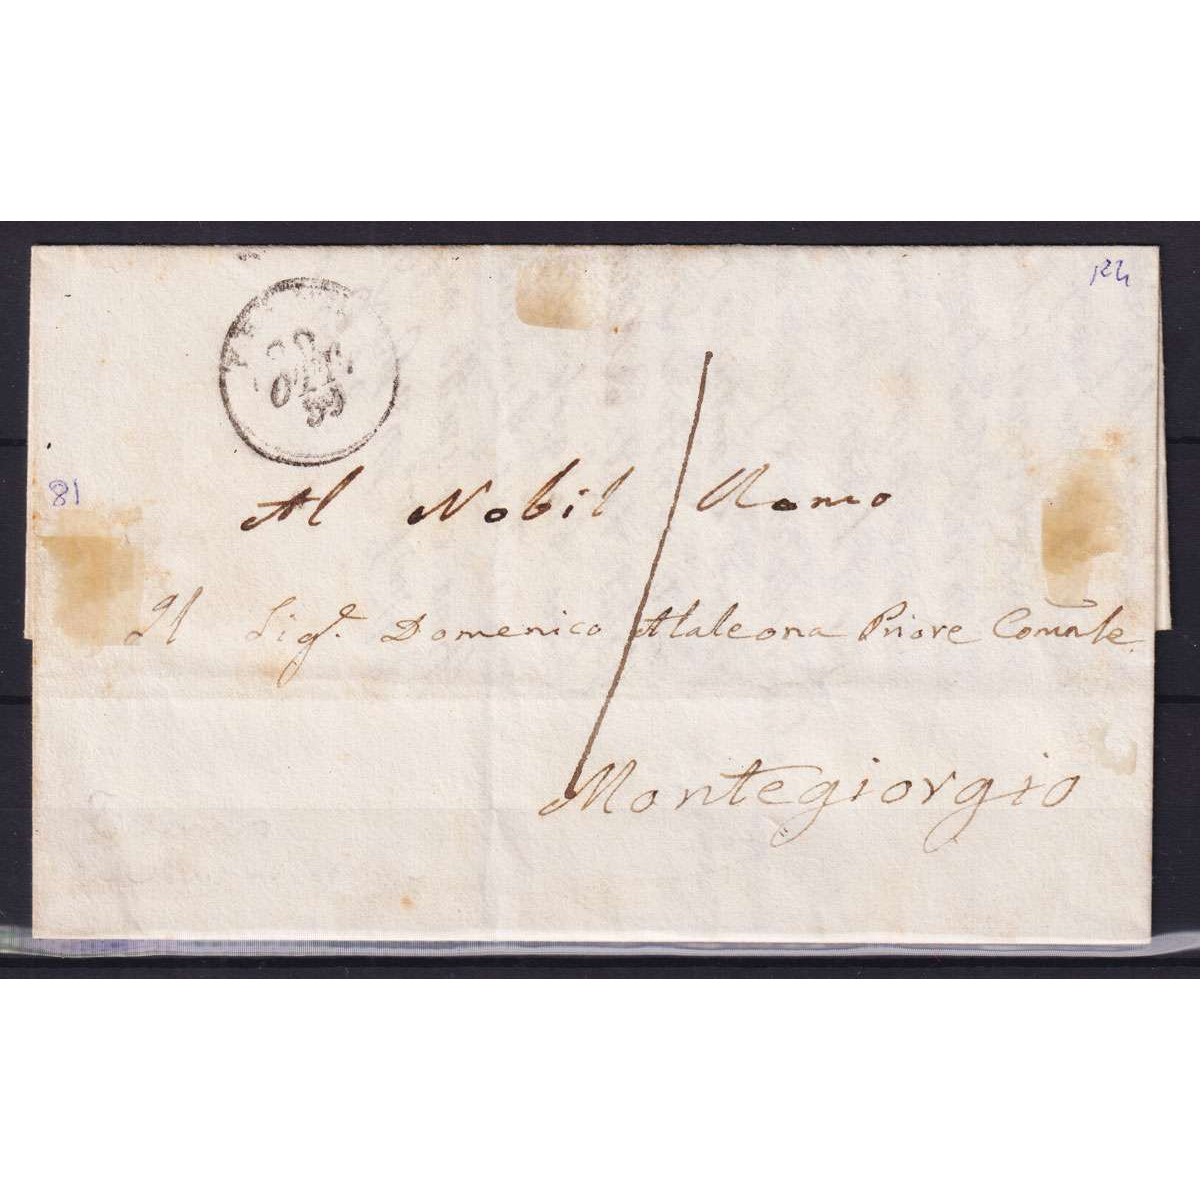 R4
OTT.
59
81
Al Nobil Uomo
Il Sigr. Domenico Alaleona Priore Comnle
Montegiorgio